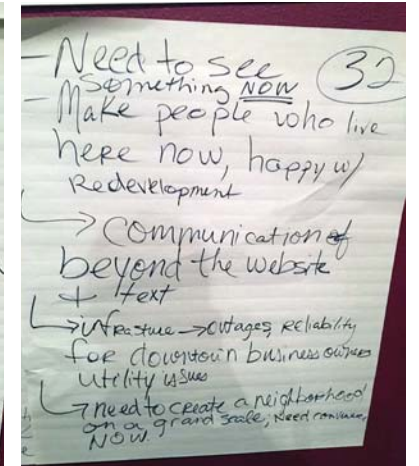 - Need to see
32
Something NOW
- Make people who live
here now, happy w/
Redevelopment
→ Communication of
beyond the website
+ text
→ infrasture → outages, reliability
for downtown business owners
utility issues
→ need to create a neighborhood
on a grand scale, need
NOW.